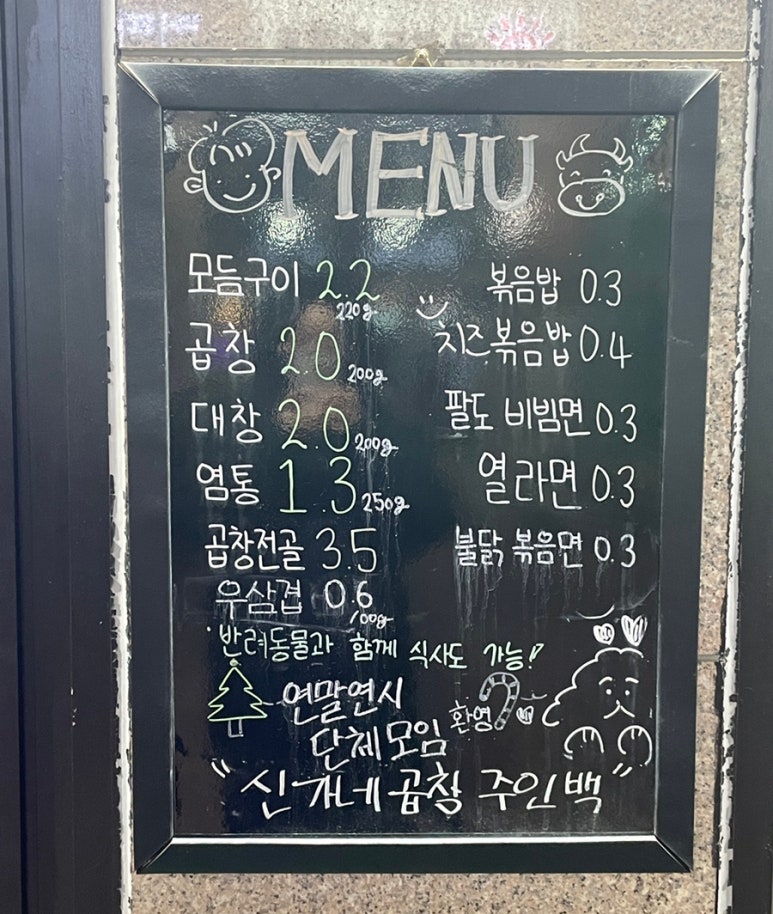 MENU
모듬구이 2.2
220g
곱창 2.0 200g
대창 2.0 200g
염통 1.3 250g
곱창전골 3.5
우삼겹 0.6
100g
볶음밥 0.3
치즈볶음밥 0.4
팔도 비빔면 0.3
열라면 0.3
불닭 볶음면 0.3
반려동물과 함께 식사도 가능!
연말연시
단체모임 환영
"신가네곱창 주인백"